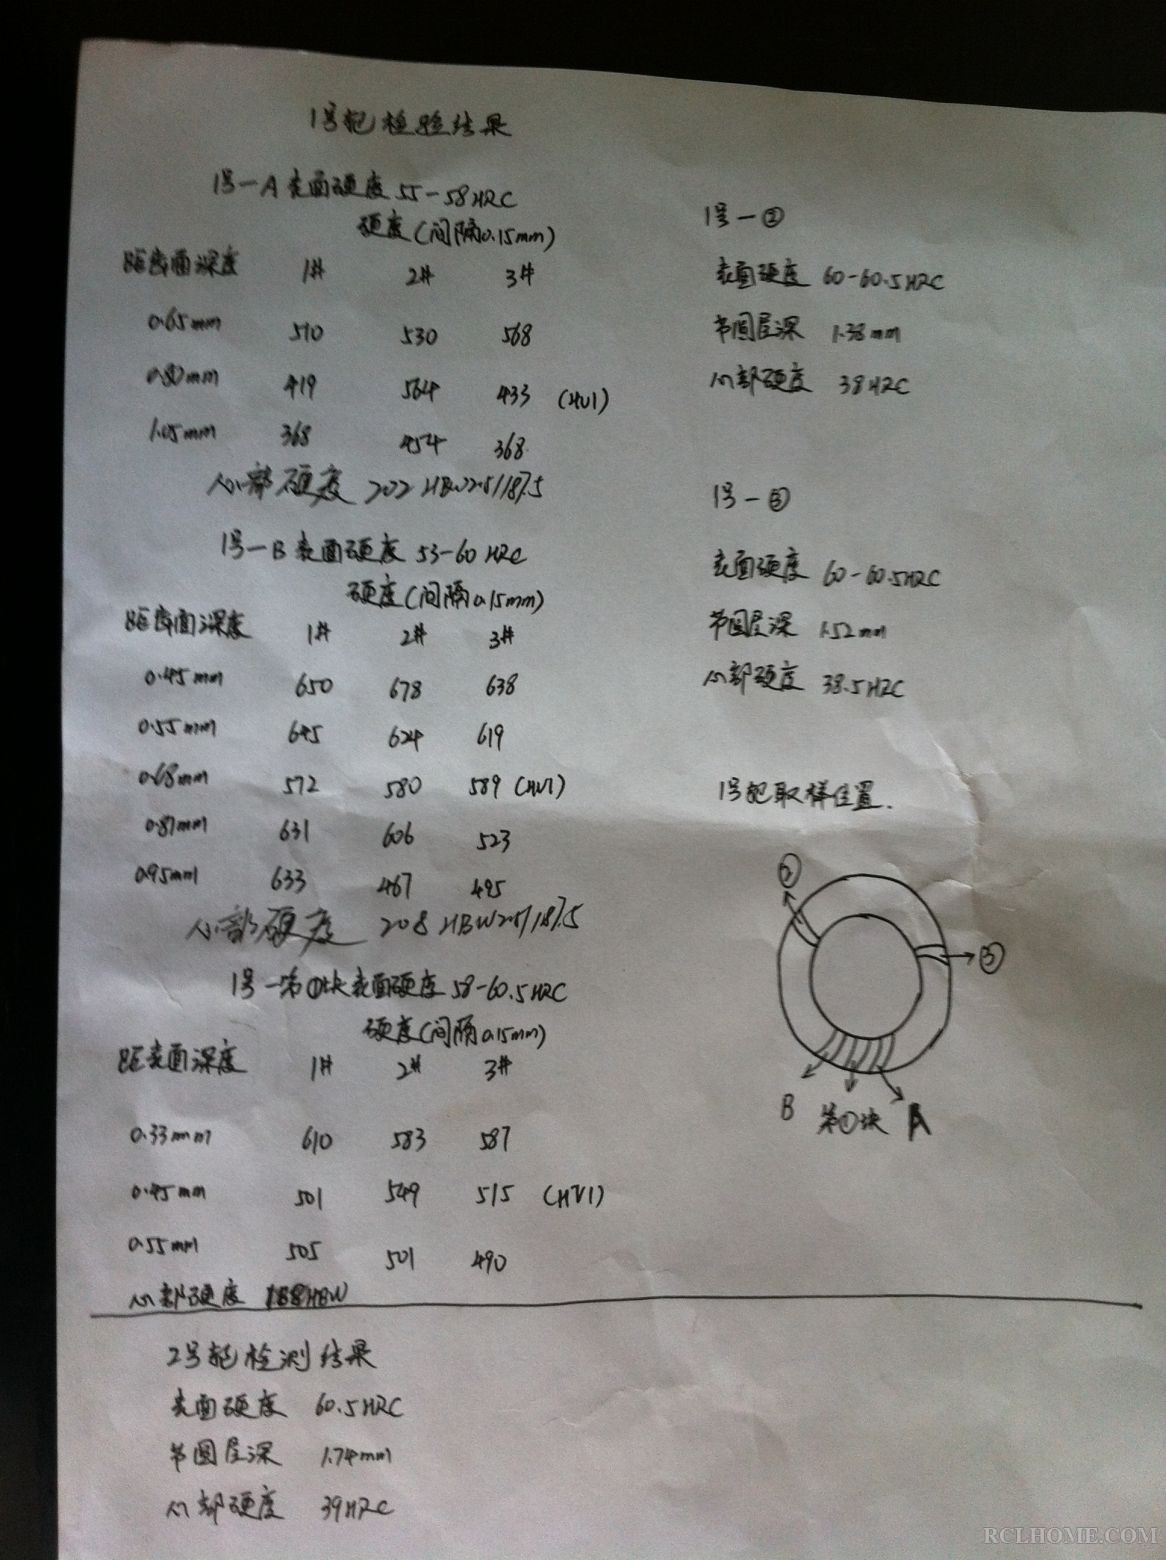 1号轮检验结果
1号-A 表面硬度 55-58HRC
硬度(间隔0.15mm)
距齿面深度 1# 2# 3#
0.65mm 510 530 568
0.80mm 419 564 433 (HV1)
1.05mm 368 454 368
心部硬度 202 HBW2.5/187.5
1号-B 表面硬度 53-60 HRC
硬度(间隔0.15mm)
距齿面深度 1# 2# 3#
0.45mm 650 678 638
0.55mm 645 624 619
0.68mm 572 580 589 (HV1)
0.81mm 631 606 523
0.95mm 633 467 495
心部硬度 208 HBW2.5/187.5
1号-第①块表面硬度 58-60.5HRC
硬度(间隔0.15mm)
距表面深度 1# 2# 3#
0.33mm 610 583 587
0.45mm 501 549 515 (HV1)
0.55mm 505 501 490
心部硬度 188HBW
1号-②
表面硬度 60-60.5HRC
节圆层深 1.38mm
心部硬度 38HRC
1号-③
表面硬度 60-60.5HRC
节圆层深 1.52mm
心部硬度 38.5HRC
1号轮取样位置.
②
③
B 第①块 A
2号轮检测结果
表面硬度 60.5HRC
节圆层深 1.74mm
心部硬度 39HRC
RCLHOME.COM